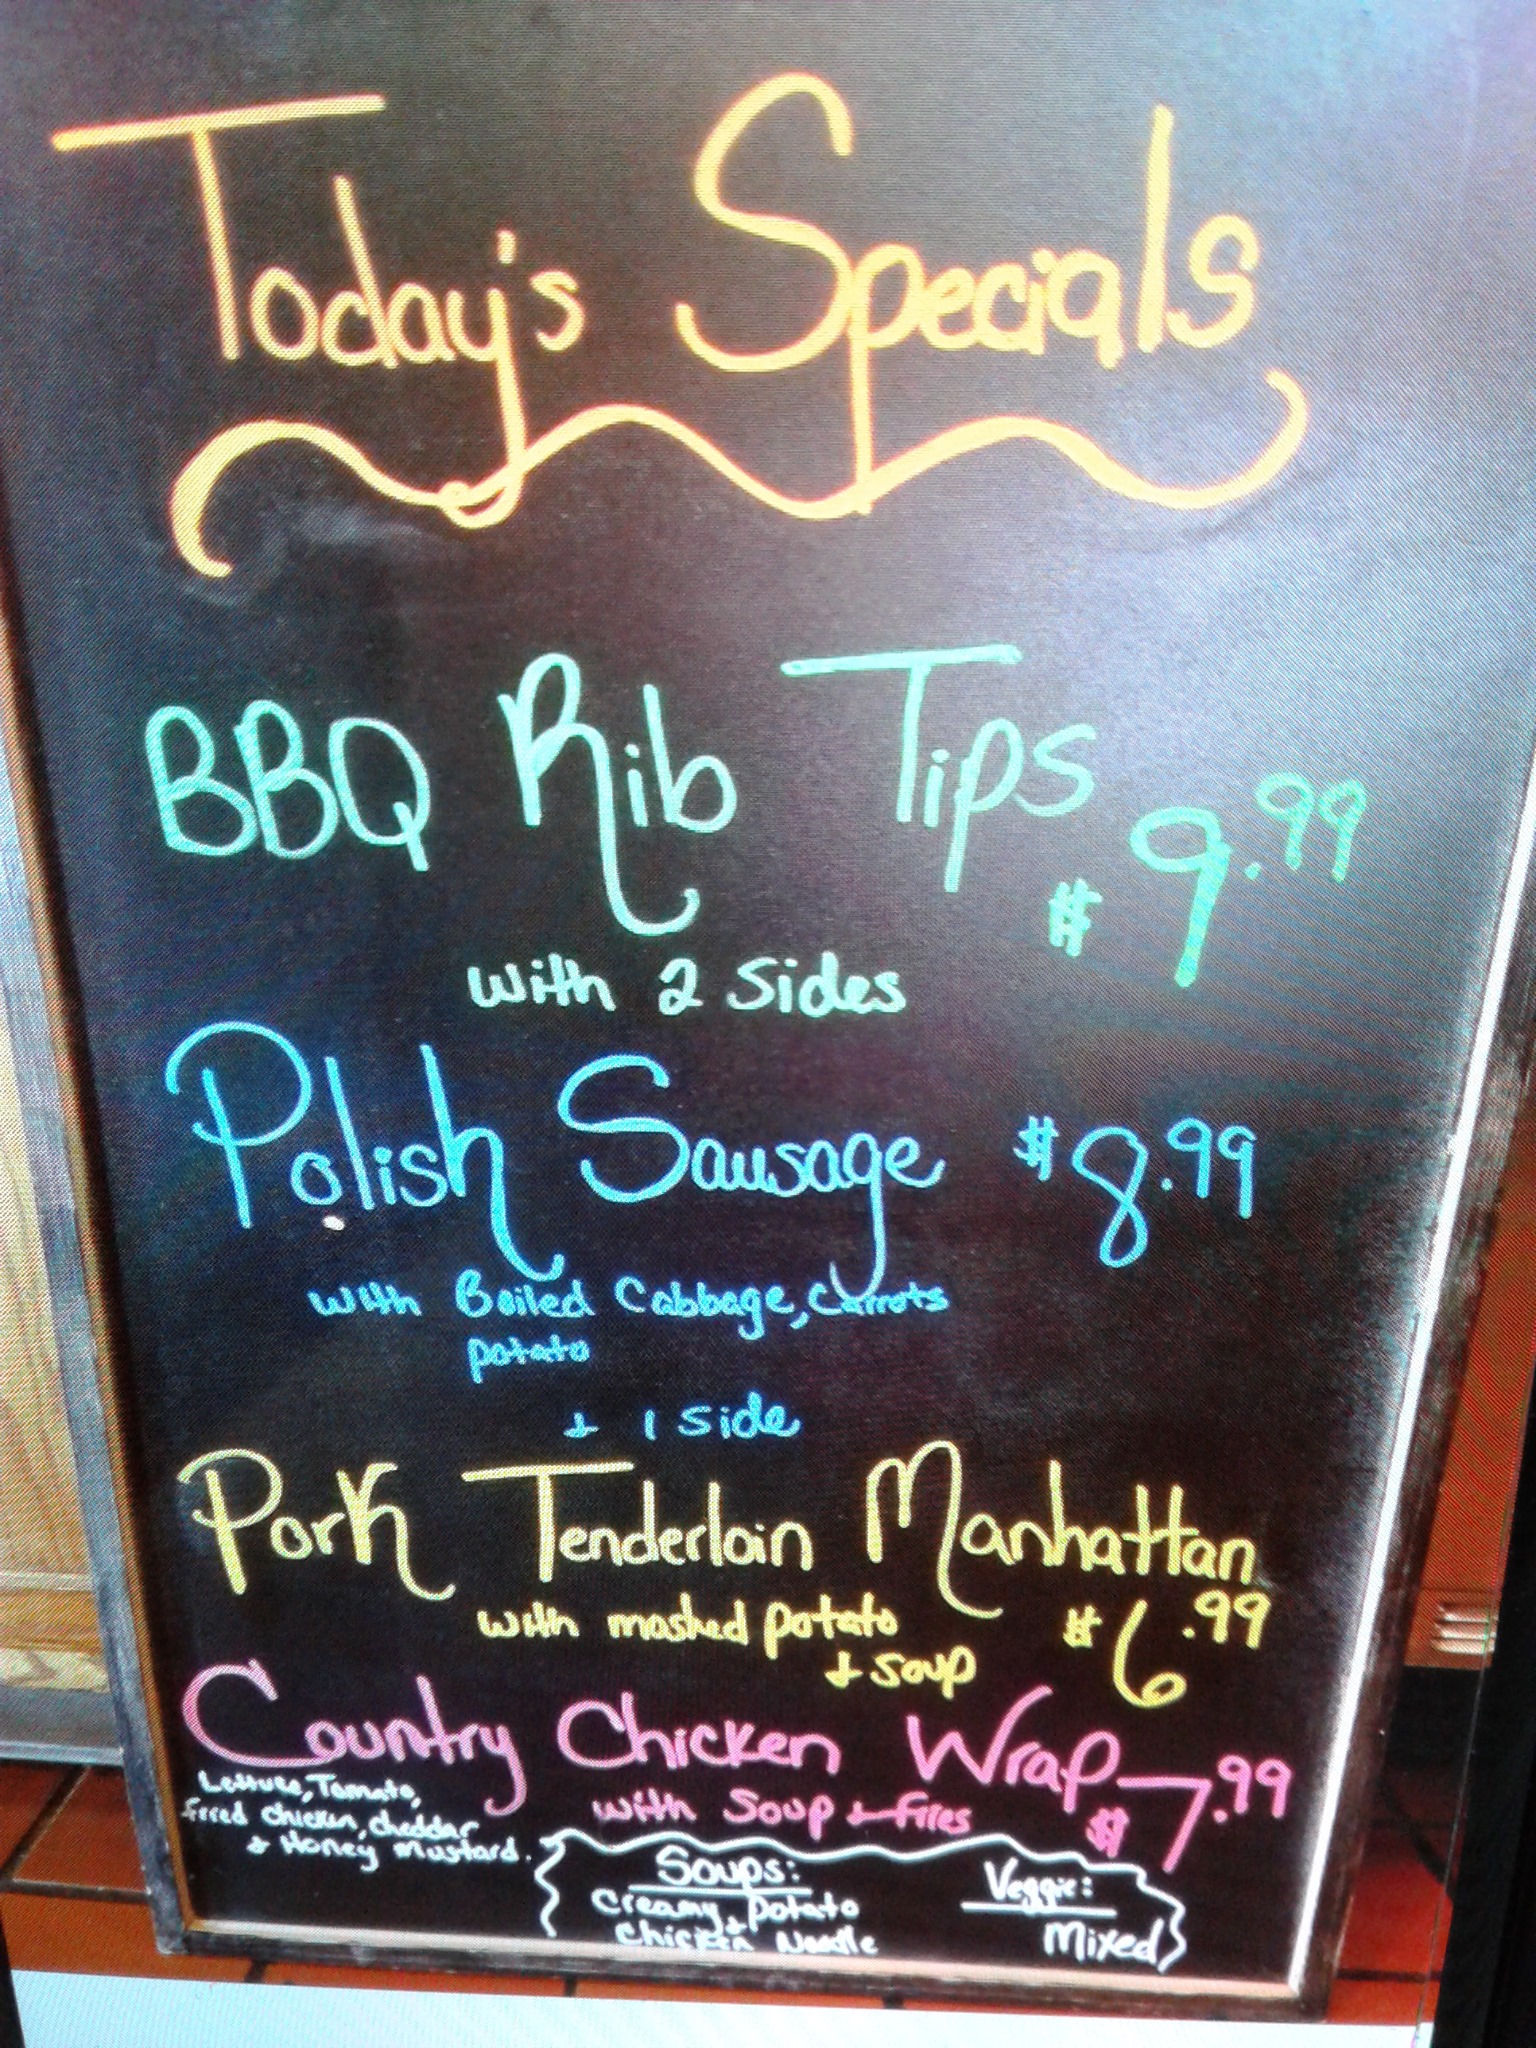 Today's Specials
BBQ Rib Tips $9.99
with 2 Sides
Polish Sausage $8.99
with Boiled Cabbage, Carrots
potato
+ 1 side
Pork Tenderloin Manhattan
with mashed potato $6.99
+ soup
Country Chicken Wrap $7.99
with Soup + fries
Lettuce, Tomato,
fried chicken, cheddar
+ Honey Mustard.
Soups:
Creamy potato
+
Chicken Noodle
Veggie:
Mixed